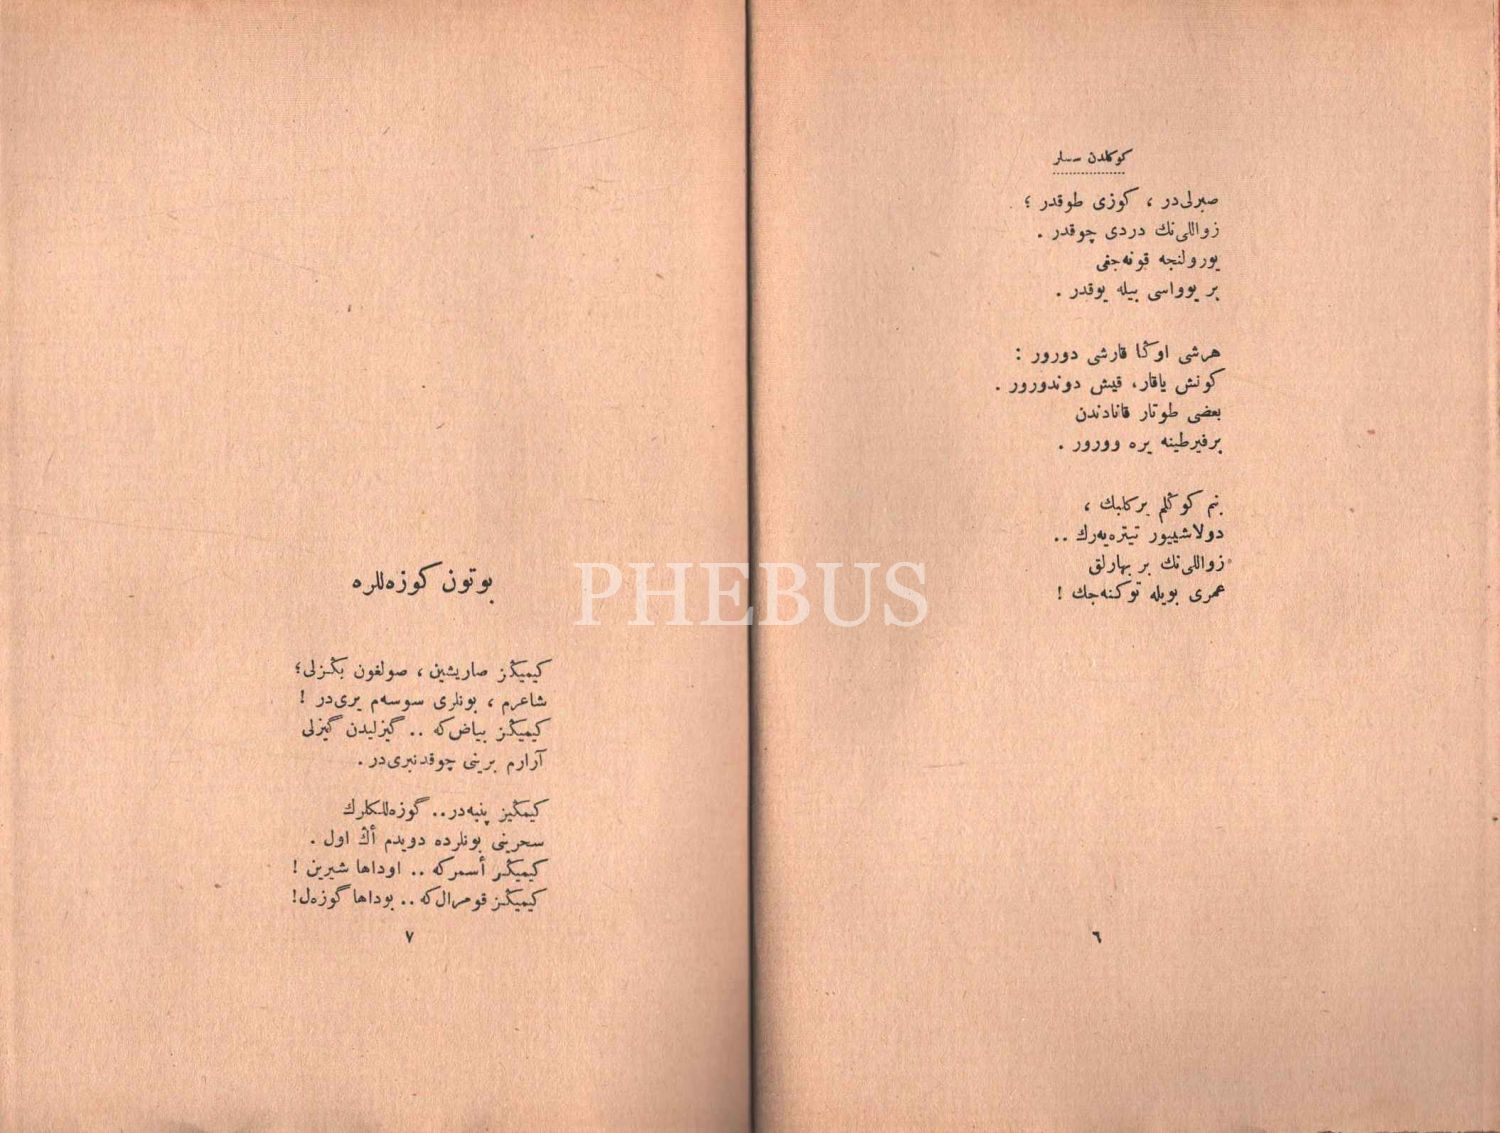 كوكلدن سسلر
صبرلی‌در ، كوزی طوقدر ؛
زواللی‌نك دردی چوقدر .
یورولنجه قونه‌جغی
بر یوواسی بیله یوقدر .
هرشی اوڭا قارشی دورور :
كونش یاقار، قیش دوندورور .
بعضی طوتار قانادندن
برفیرطینه یره وورور .
بنم كوڭلم بركلبك ،
دولاشییور تیتره‌یه‌رك ..
زواللی‌نك بر بهارلق
عمری بویله توكنه‌جك !
٦
بوتون كوزه‌للره
كیمیڭز صاریشین ، صولغون بڭزلی؛
شاعرم ، بونلری سوسه‌م یری‌در !
كیمیڭز بیاض‌كه .. گیزلیدن گیزلی
آرارم برینی چوقدنبری‌در .
كیمڭیز پنبه‌در.. گوزه‌للكلرك
سحرینی بونلرده دویدم أڭ اول .
كیمیڭز أسمركه .. اوداها شیرین !
كیمیڭز قومرال‌كه .. بوداها گوزه‌ل!
٧
PHEBUS